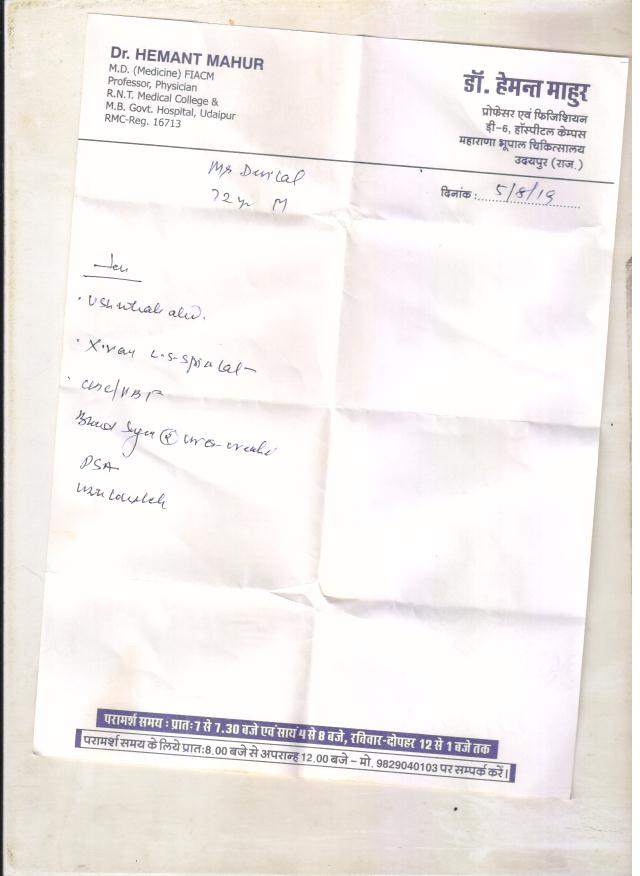 Dr. HEMANT MAHUR
M.D. (Medicine) FIACM
Professor, Physician
R.N.T. Medical College &
M.B. Govt. Hospital, Udaipur
RMC-Reg. 16713
डॉ. हेमन्त माहुर
प्रोफेसर एवं फिजिशियन
डी-6, हॉस्पीटल केम्पस
महाराणा भूपाल चिकित्सालय
उदयपुर (राज.)
दिनांक : 5/8/19
72 yr M
X-ray L-S-Spine Lat
PSA
परामर्श समय : प्रातः 7 से 7.30 बजे एवं सायं 4 से 8 बजे, रविवार-दोपहर 12 से 1 बजे तक
परामर्श समय के लिये प्रातः 8.00 बजे से अपरान्ह 12.00 बजे – मो. 9829040103 पर सम्पर्क करें।